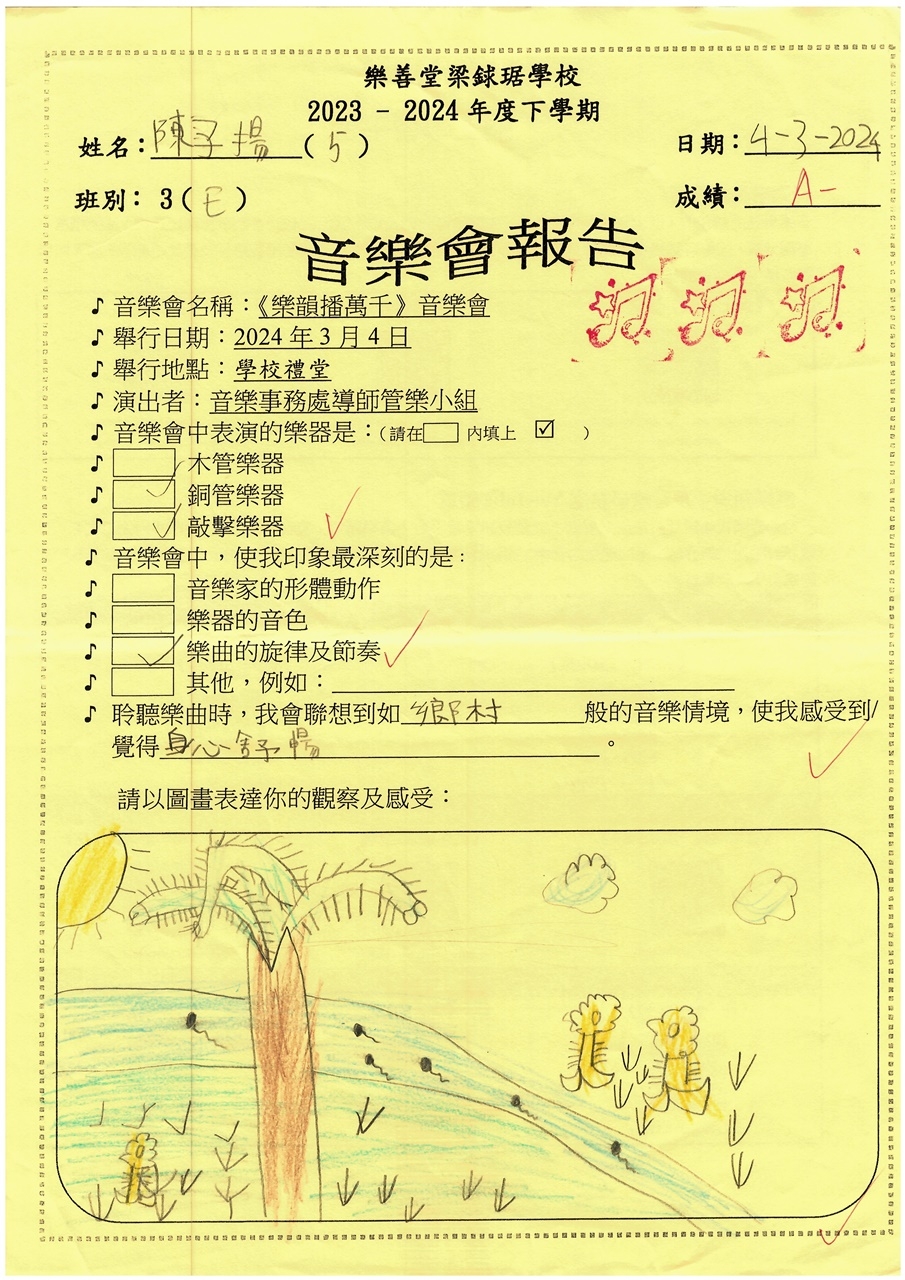 樂善堂梁銶琚學校
2023 - 2024 年度下學期
姓名：陳子揚（5）
日期：4-3-2024
班別：3（E）
成績：A-
音樂會報告
♪ 音樂會名稱：《樂韻播萬千》音樂會
♪ 舉行日期：2024 年 3 月 4 日
♪ 舉行地點：學校禮堂
♪ 演出者：音樂事務處導師管樂小組
♪ 音樂會中表演的樂器是：（請在□ 內填上 ☑ ）
♪ □ 木管樂器
♪ ☑ 銅管樂器
♪ ☑ 敲擊樂器
♪ 音樂會中，使我印象最深刻的是：
♪ □ 音樂家的形體動作
♪ □ 樂器的音色
♪ ☑ 樂曲的旋律及節奏
♪ □ 其他，例如：
♪ 聆聽樂曲時，我會聯想到如鄉村般的音樂情境，使我感受到/
覺得身心舒暢。
請以圖畫表達你的觀察及感受：